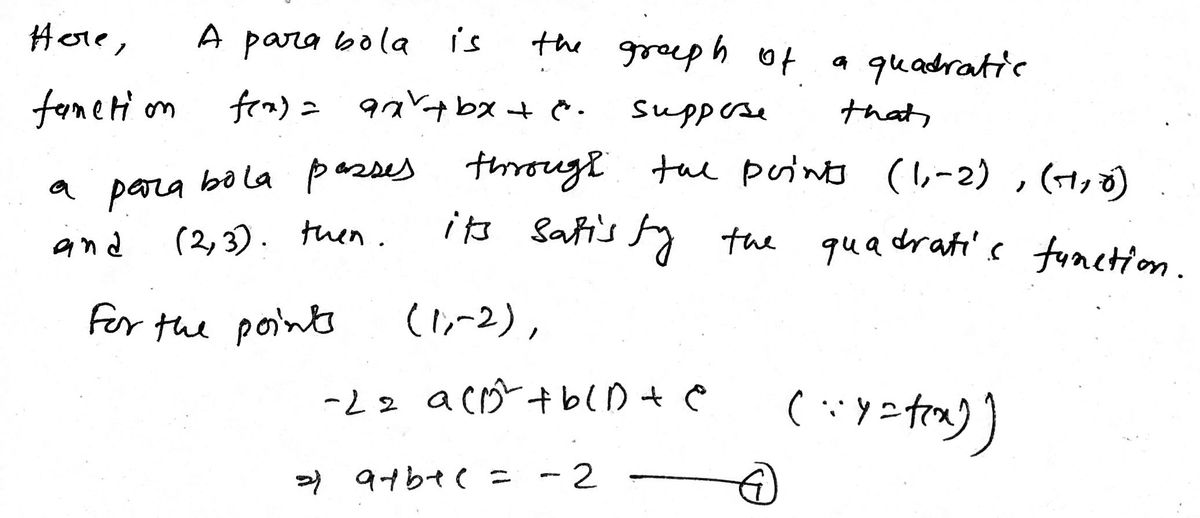 Here, A parabola is the graph of a quadratic
function f(x) = ax²+bx + c. suppose that,
a parabola passes through the points (1,-2), (-1,0)
and (2,3). then. its satisfy the quadratic function.
For the points (1,-2),
-2 = a(1)²+b(1)+c (∵ y=f(x))
⇒ a+b+c = -2 — ①